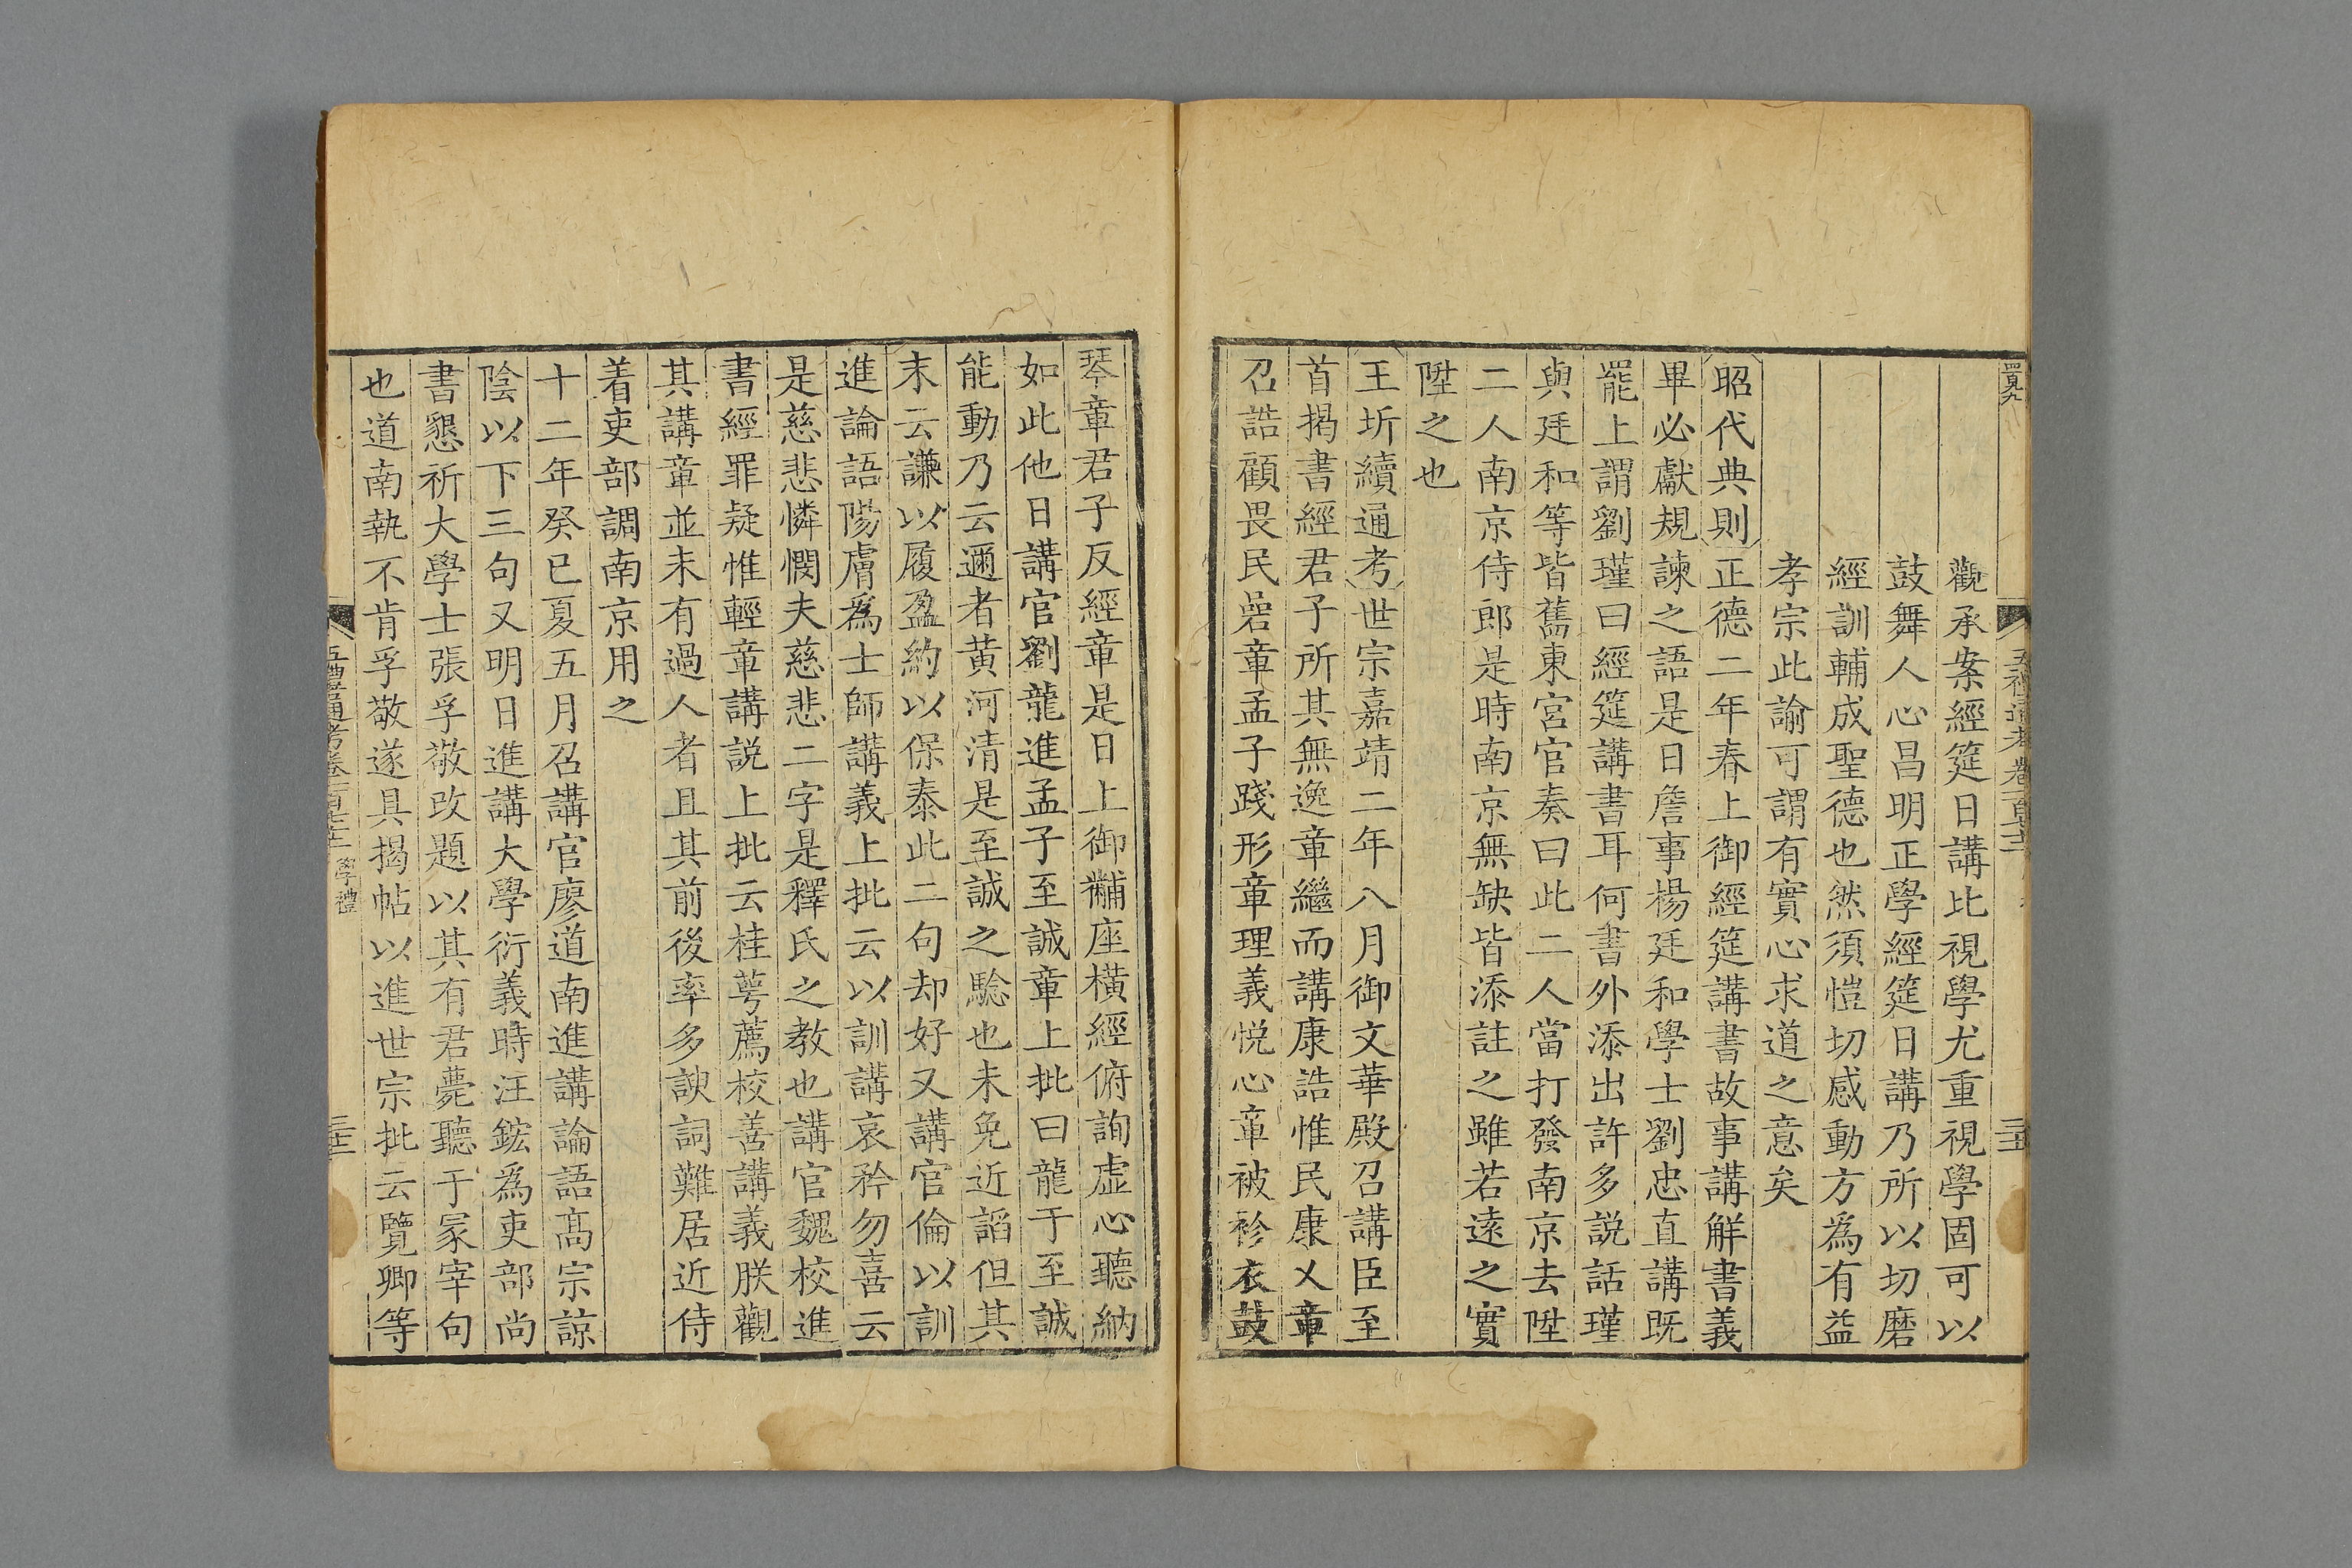 觀承案經筵日講比視學尤重視學固可以
鼓舞人心昌明正學經筵日講乃所以切磨
經訓輔成聖德也然須愷切感動方爲有益
孝宗此諭可謂有實心求道之意矣
昭代典則正德二年春上御經筵講書故事講解書義
畢必獻規諫之語是日詹事楊廷和學士劉忠直講既
罷上謂劉瑾曰經筵講書耳何書外添出許多説話瑾
與廷和等皆舊東宮官奏曰此二人當打發南京去陞
二人南京侍郎是時南京無缺皆添註之雖若遠之實
陞之也
王圻續通考世宗嘉靖二年八月御文華殿召講臣至
首揭書經君子所其無逸章繼而講康誥惟民康乂章
召誥顧畏民碞章孟子踐形章理義悦心章被袗衣鼓
琴章君子反經章是日上御黼座橫經俯詢虛心聽納
如此他日講官劉龍進孟子至誠章上批曰龍于至誠
能動乃云邇者黄河清是至誠之騐也未免近謟但其
末云謙以履盈約以保泰此二句却好又講官倫以訓
進論語陽膚爲士師講義上批云以訓講哀矜勿喜云
是慈悲憐憫夫慈悲二字是釋氏之教也講官魏校進
書經罪疑惟輕章講説上批云桂萼薦校善講義朕觀
其講章並未有過人者且其前後率多諛詞難居近侍
着吏部調南京用之
十二年癸巳夏五月召講官廖道南進講論語高宗諒
陰以下三句又明日進講大學衍義時汪鋐爲吏部尚
書懇祈大學士張孚敬改題以其有君薨聽于冢宰句
也道南執不肯孚敬遂具揭帖以進世宗批云覽卿等
五禮通考卷一百七十二 學禮